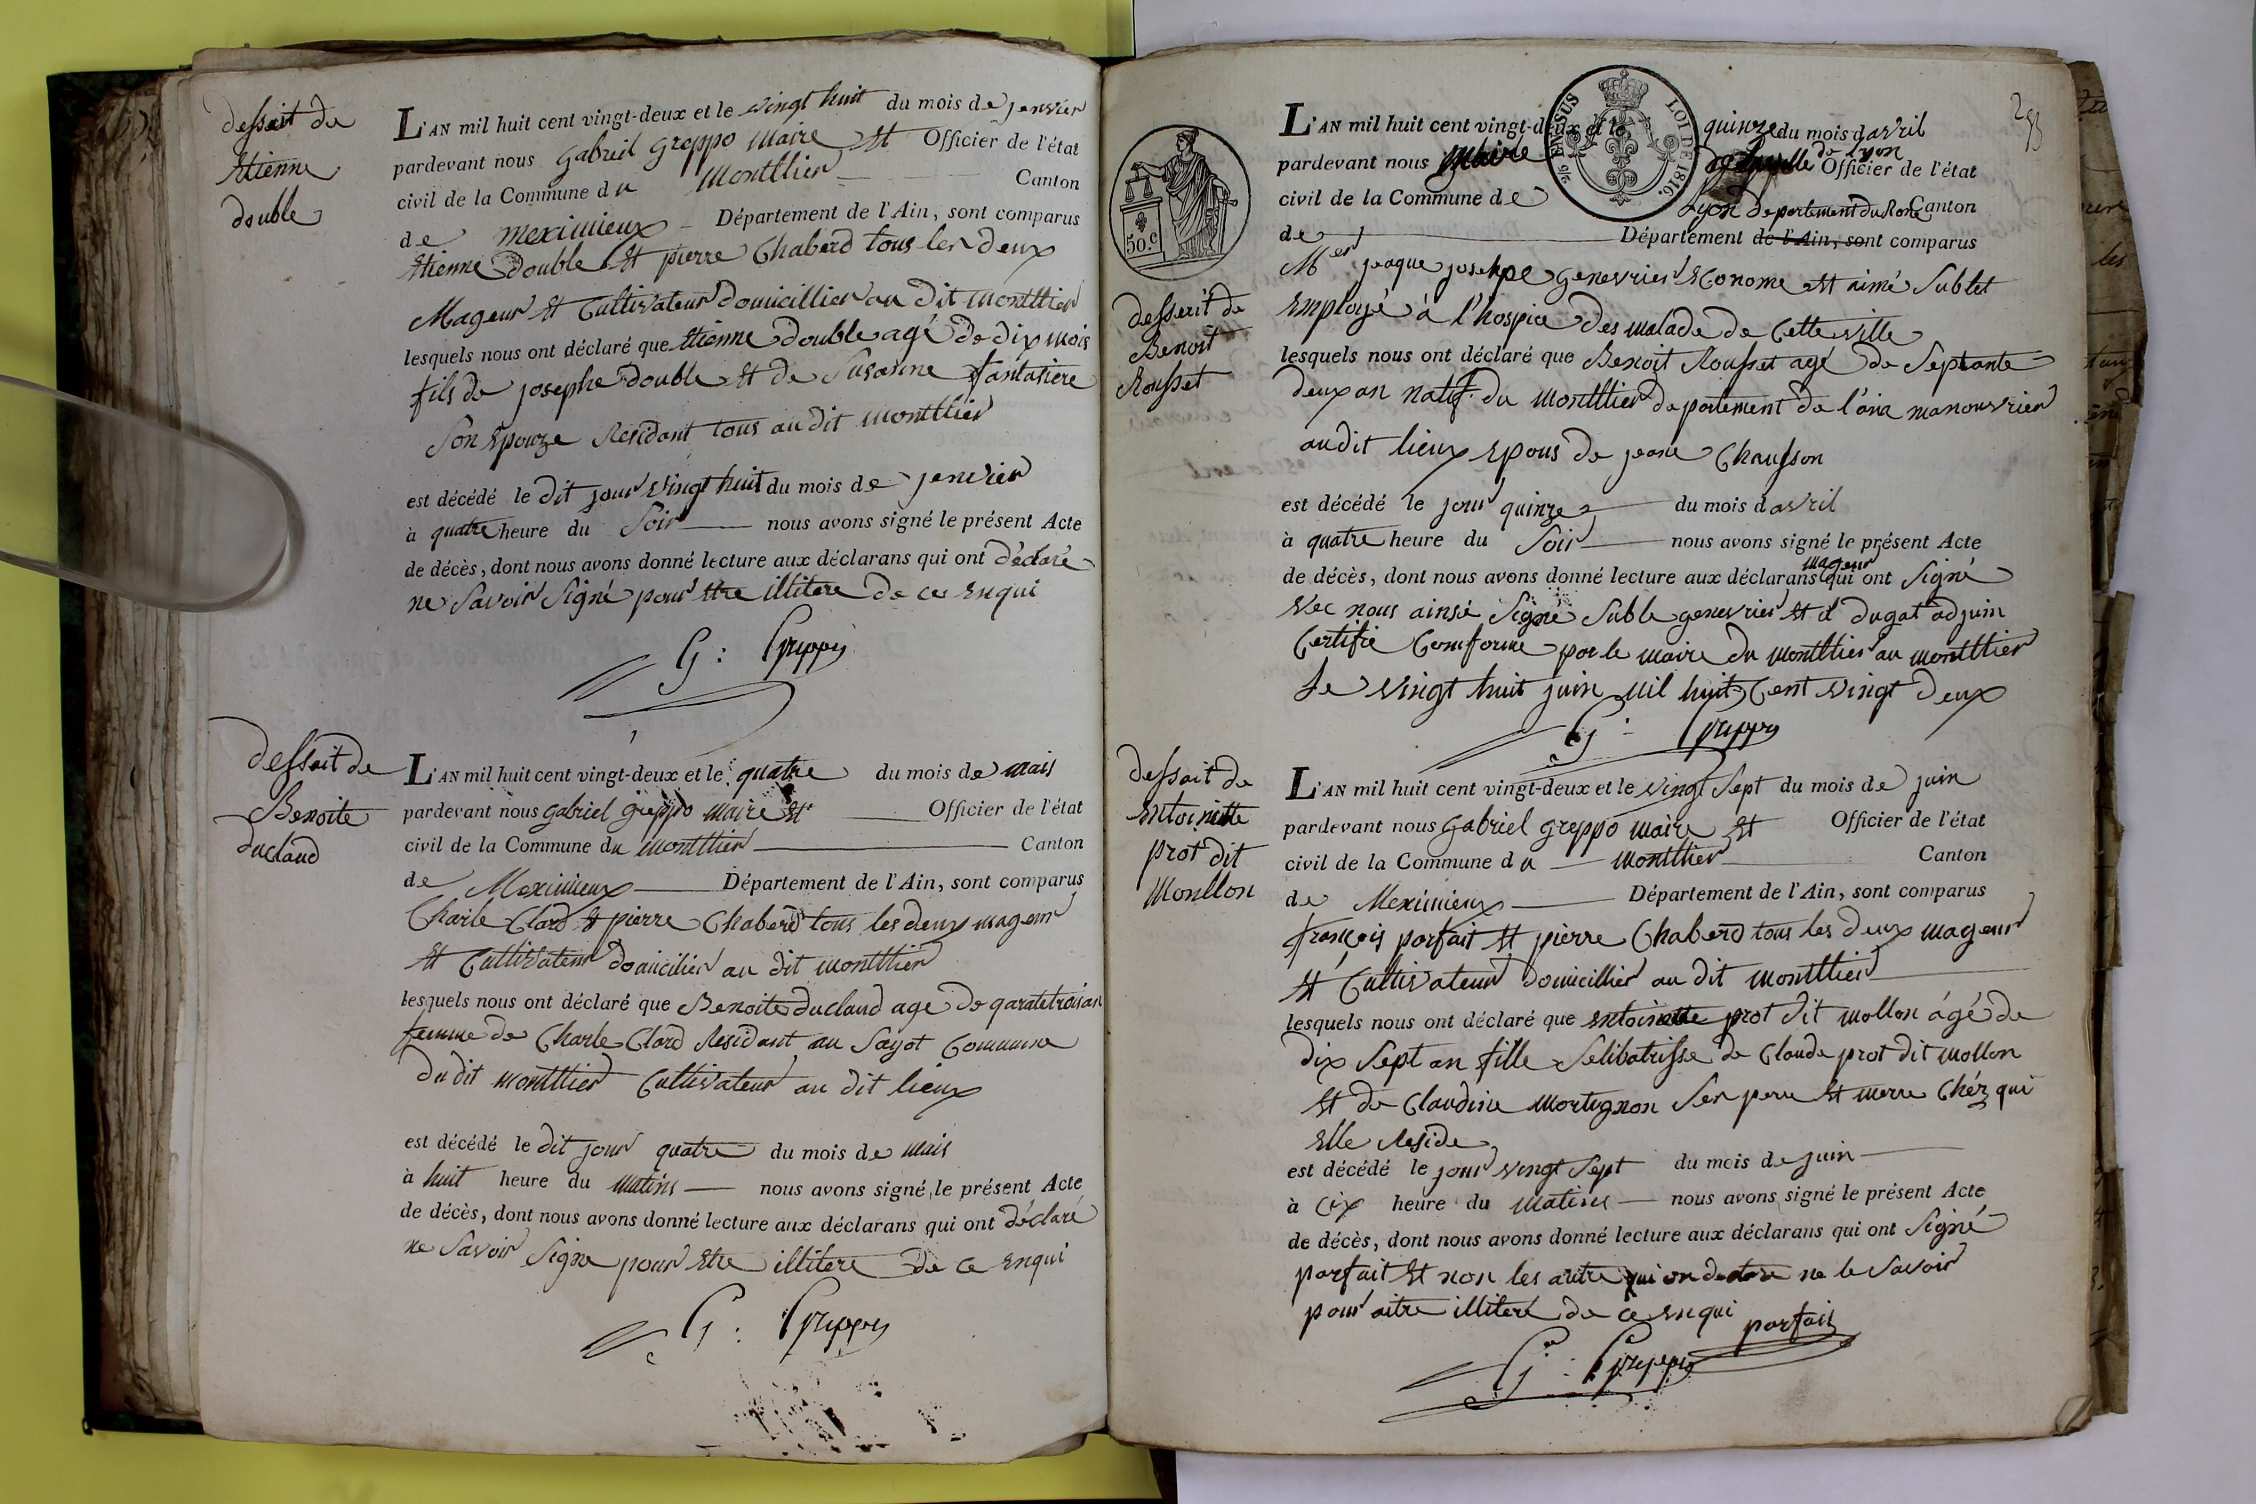 dessait de
Etienne
double
L'AN mil huit cent vingt-deux et le vingt huit du mois de jenvier
pardevant nous gabriel greppo maire et Officier de l'état
civil de la Commune du Montllier Canton
de meximieux Département de l'Ain, sont comparus
Etienne double et pierre Chaberd tous les deux
Mageur et Cultivateur domicillier au dit montllier
lesquels nous ont déclaré que Etienne double agé de dix mois
fils de josephe double et de Susanne fantasiere
Son Epouze Residant tous au dit montllier
est décédé le dit jour vingt huit du mois de jenvier
à quatre heure du Soir nous avons signé le présent Acte
de décès, dont nous avons donné lecture aux déclarans qui ont déclaré
ne Savoir Signé pour Etre illitere de ce Enqui
G : Greppo
dessait de
Benoite
ducland
L'AN mil huit cent vingt-deux et le quatre du mois de mais
pardevant nous gabriel greppo maire et Officier de l'état
civil de la Commune du montllier Canton
de Meximieux Département de l'Ain, sont comparus
Charle Clard et pierre Chaberd tous les deux mageur
et Cultivateur domicilier au dit montllier
lesquels nous ont déclaré que Benoite ducland age de qarate trois an
femme de Charle Clard Residant au Sayot Commune
du dit montllier Cultivateur au dit lieux
est décédé le dit jour quatre du mois de mais
à huit heure du matins nous avons signé le présent Acte
de décès, dont nous avons donné lecture aux déclarans qui ont déclaré
ne Savoir Signe pour Etre illitere de ce Enqui
G : Greppo
293
EN SUS
LOI DE 1816.
50.c
dessait de
Benoit
Rousset
L'AN mil huit cent vingt-deux et le quinze du mois d avril
pardevant nous Maire de Lyon Officier de l'état
civil de la Commune de Lyon departement du Rone Canton
de Département de l'Ain, sont comparus
Mer jeaque josehpe genevrier Econome et aimé Sublet
Employé á l'hospice des malade de Cette ville
lesquels nous ont déclaré que Benoit Rousset agé de Septante
deux an natif du Montllier departement de l'ain manouvrier
audit lieux Epous de jeane Chausson
est décédé le jour quinze du mois d avril
à quatre heure du Soir nous avons signé le présent Acte
de décès, dont nous avons donné lecture aux déclarans mageur qui ont Signé
vec nous ainsi Signé Suble genevrier et d dugat adjuin
Certifie Comforme par le maire du montllier au montllier
Le vingt huit juin mil huit Cent vingt deux
G : Greppo
dessait de
Entoinette
prot dit
Monllon
L'AN mil huit cent vingt-deux et le vingt Sept du mois de juin
pardevant nous gabriel greppo maire et Officier de l'état
civil de la Commune du montllier Canton
de Meximieux Département de l'Ain, sont comparus
françois parfait et pierre Chaberd tous les deux mageur
et Cultivateur domicillier au dit montllier
lesquels nous ont déclaré que Entoinette prot dit mollon ágé de
dix Sept an fille Selibatrisse de Claude prot dit mollon
et de Claudine mortignon Ses pere et merre Chéz qui
Elle Reside
est décédé le jour vingt Sept du mois de juin
à Cix heure du matins nous avons signé le présent Acte
de décès, dont nous avons donné lecture aux déclarans qui ont Signé
parfait et non les autre qui on declare ne le Savoir
pour aitre illiteré de ce Enqui parfait
G : Greppo